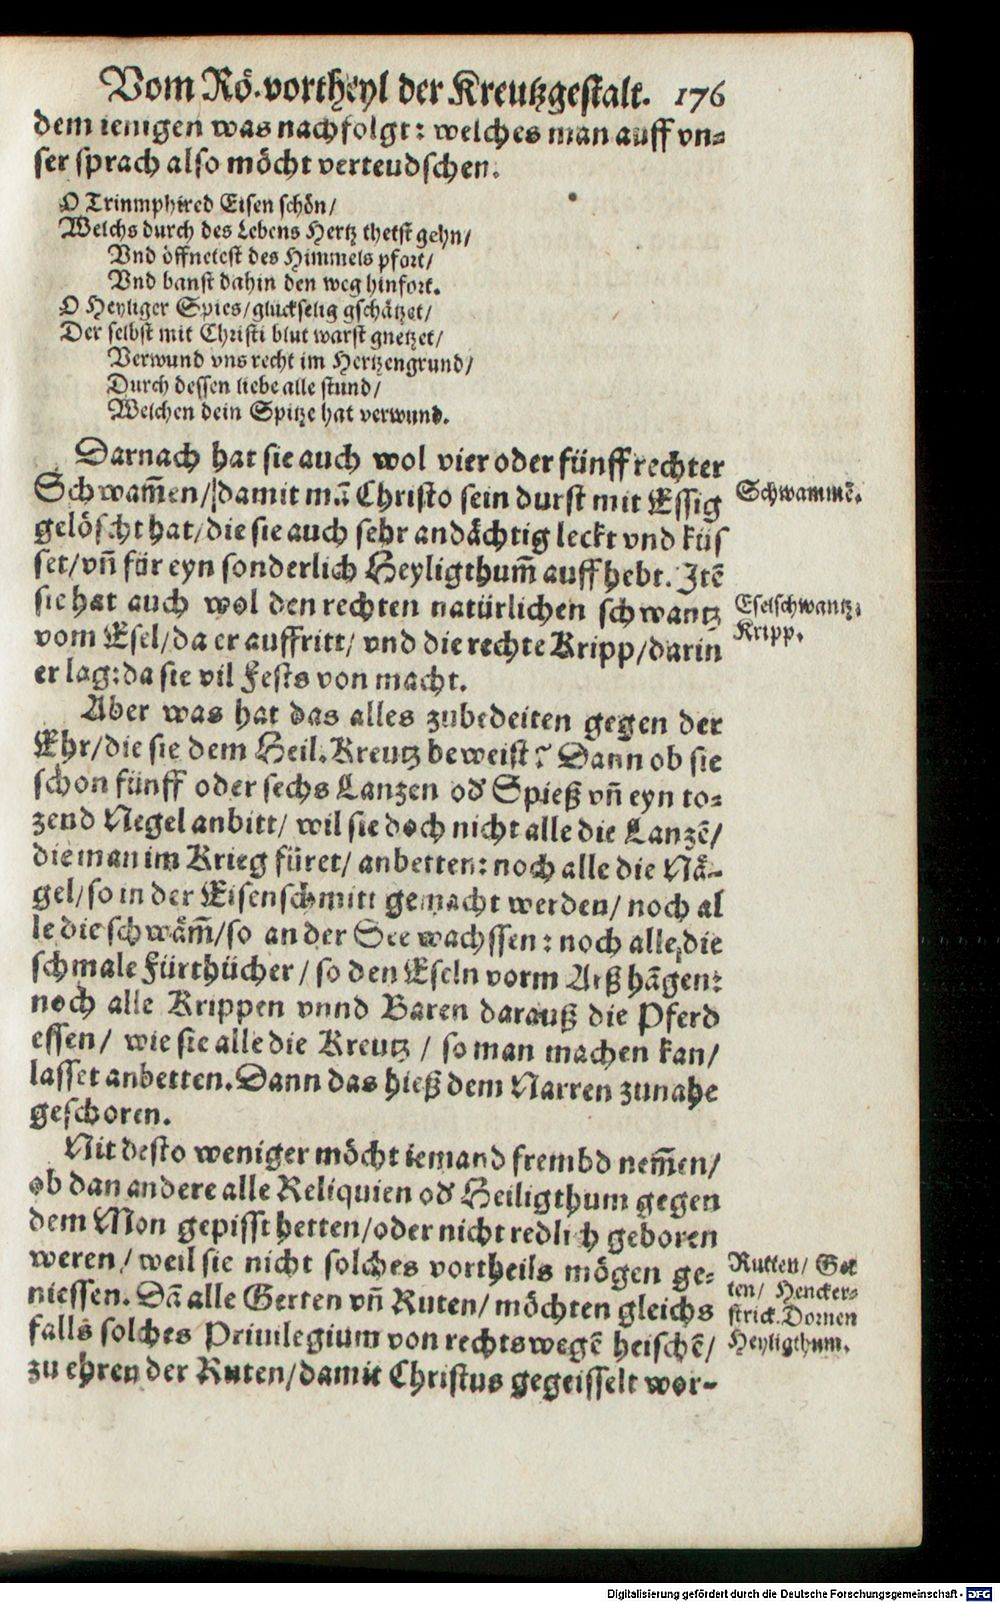 Vom Rö. vortheyl der Kreutzgestalt. 176
dem ienigen was nachfolgt: welches man auff vn=
ser sprach also möcht verteudschen.
O Trinmphired Eisen schön/
Welchs durch des Lebens Hertz thetst gehn/
Vnd öffnetest des Himmels pfort/
Vnd banst dahin den weg hinfort.
O Heyliger Spies/glückselig gschätzet/
Der selbst mit Christi blut warst gnetzet/
Verwund vns recht im Hertzengrund/
Durch dessen liebe alle stund/
Welchen dein Spitze hat verwund.
Darnach hat sie auch wol vier oder fünff rechter
Schwam̃en/damit mã Christo sein durst mit Essig
Schwammẽ.
gelöscht hat/die sie auch sehr andächtig leckt vnd küs
set/vñ für eyn sonderlich Heyligthum̃ auff hebt. Itẽ
sie hat auch wol den rechten natürlichen schwantz
Eselschwantz.
vom Esel/da er auffritt/ vnd die rechte Kripp/darin
Kripp.
er lag: da sie vil Fests von macht.
Aber was hat das alles zubedeiten gegen der
Ehr/die sie dem Heil. Kreutz beweist? Dann ob sie
schon fünff oder sechs Lanzen od' Spieß vñ eyn to=
zend Negel anbitt/ wil sie doch nicht alle die Lanzẽ/
die man im Krieg füret/ anbetten: noch alle die Nä=
gel/so in der Eisenschmitt gemacht werden/ noch al
le die schwäm̃/so an der See wachssen: noch alle die
schmale Fürthücher/ so den Eseln vorm Arß hãgen:
noch alle Krippen vnnd Baren darauß die Pferd
essen/ wie sie alle die Kreutz / so man machen kan/
lasset anbetten. Dann das hieß dem Narren zunahe
geschoren.
Nit desto weniger möcht iemand frembd nem̃en/
ob dan andere alle Reliquien od' Heiligthum gegen
dem Mon gepisst hetten/oder nicht redlich geboren
weren/ weil sie nicht solches vortheils mögen ge=
Rutten/ Ger
niessen. Dã alle Gerten vñ Ruten/ möchten gleichs
ten/ Hencker=
falls solches Priuilegium von rechtswegẽ heischẽ/
strick. Dornen
Heyligthum.
zu ehren der Ruten/damit Christus gegeisselt wor=
Digitalisierung gefördert durch die Deutsche Forschungsgemeinschaft - DFG